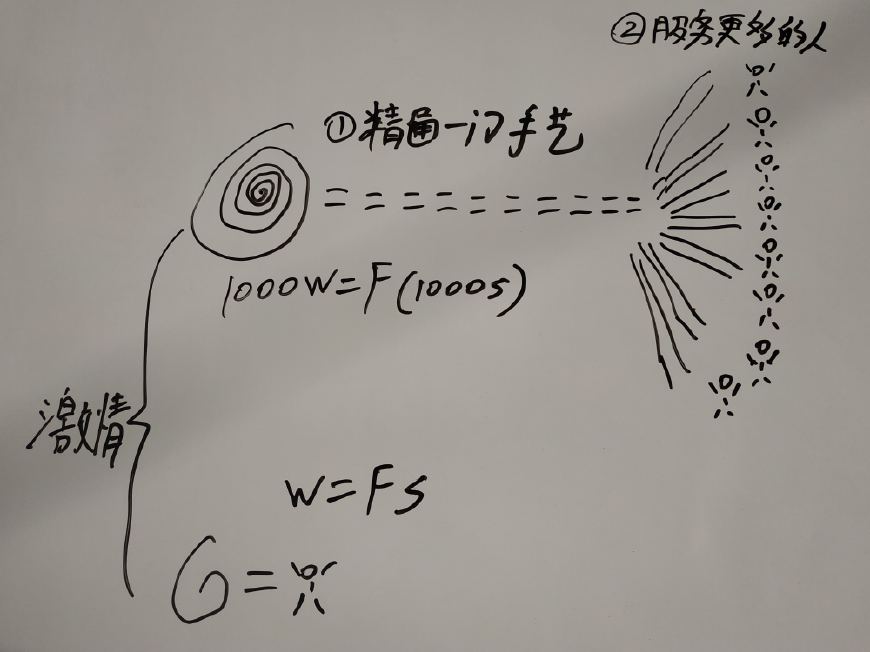 ②服务更多的人
①精通一门手艺
1000W=F(1000s)
激情
W=Fs